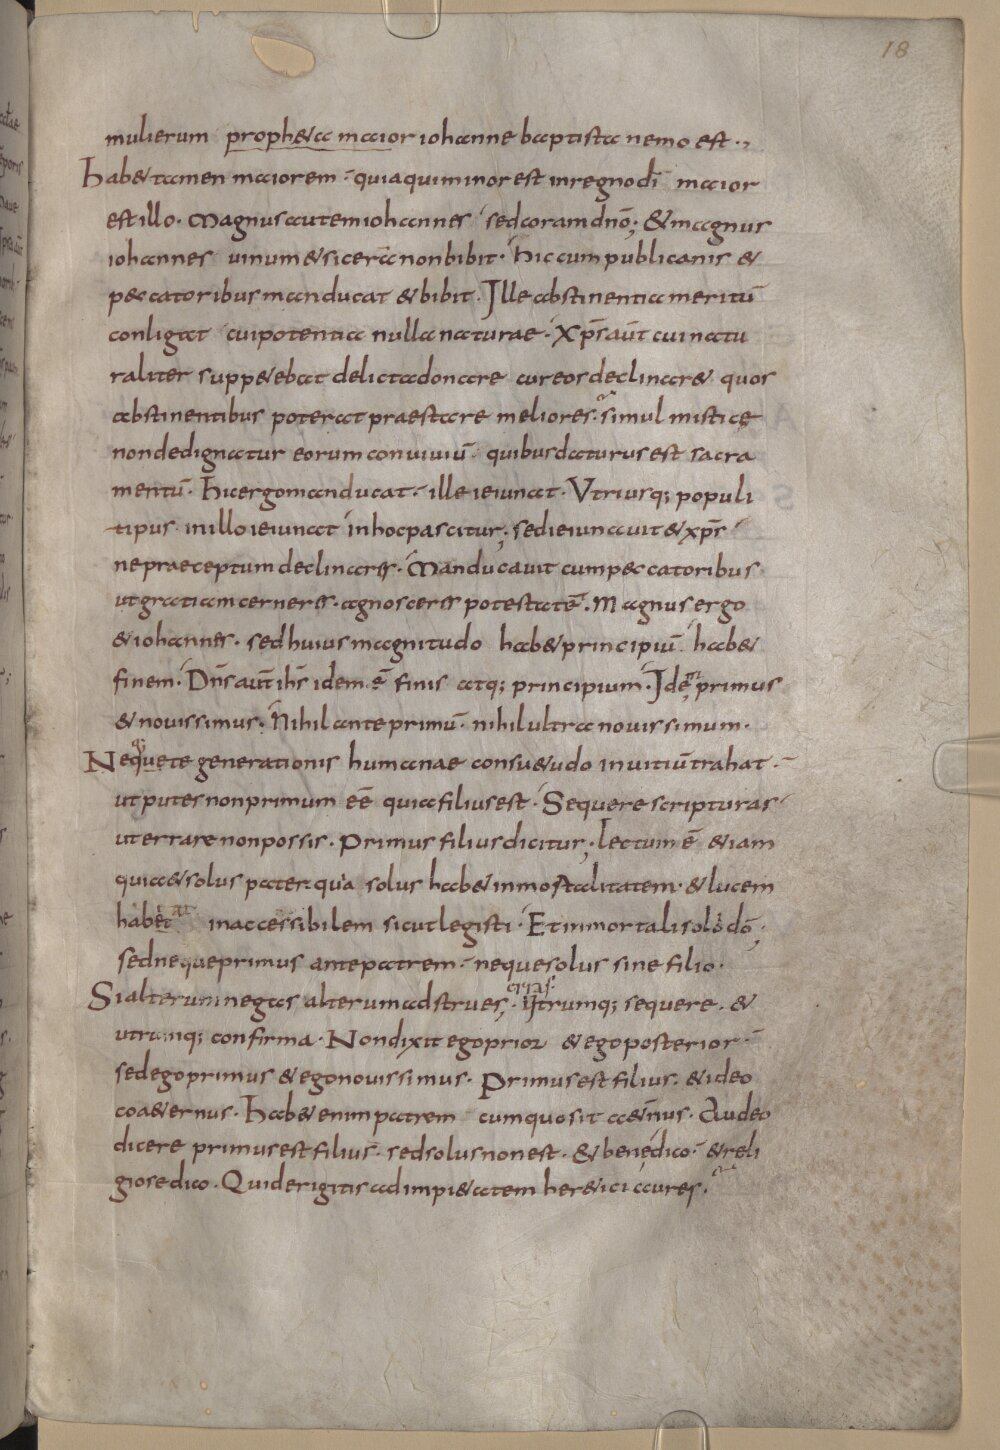 18
mulierum proph&a maior iohanne baptista nemo est ·,
Hab& tamen maiorem · quia qui minor est in regno dī maior
est illo · Magnus autem iohannes sed coram dnō; & magnus
iohannes uinum & sicera non bibit · Hic cum publicanis &
peccatoribus manducat & bibit · Ille abstinentia meritū
conligat cui potentia nulla naturae · Xp̄s aūt cui natu
raliter supp&ebat delicta donare cur eos declinar& quos
abstinentibus poterat praestare meliores · simul mistice
non dedignatur eorum conuiuiū · quibus daturus est sacra
mentū · Hic ergo manducat · ille ieiunat · Vtriusq; populi
tipus in illo ieiunat in hoc pascitur; sed ieiunauit & xp̄s
ne praeceptum declinaress · Manducauit cum peccatoribus
ut gratiam cerneress · agnosceress potestatē · Magnus ergo
& iohannes · sed huius magnitudo hab& principiū hab&
finem · Dn̄s aūt ih̄s idem ē finis atq; principium · Idē primus
& nouissimus · Nihil ante primū · nihil ultra nouissimum ·
Neque te generationis humanae consu&udo in uitiū trahat ·
ut putes non primum eē quia filius est · Sequere scripturas
ut errare non possis · Primus filius dicitur; lectum ē & iam
quia & solus pater · quia solus hab& inmortalitatem · & lucem
habet inaccessibilem sicut legisti · Et inmortali solo dō;
sed neque primus ante patrem · neque solus sine filio ·
Si alterum negas alterum adstrues; · utrumq; sequere · &
utrumq; confirma · Non dixit ego prior & ego posterior ·
sed ego primus & ego nouissimus · Primus est filius · & ideo
coa&ernus · Hab& enim patrem cum quo sit a&n̄us · Audeo
dicere primus est filius · sed solus non est · & bene dico · & reli
giose dico · Quid erigitis ad impi&atem her&ici aures ·